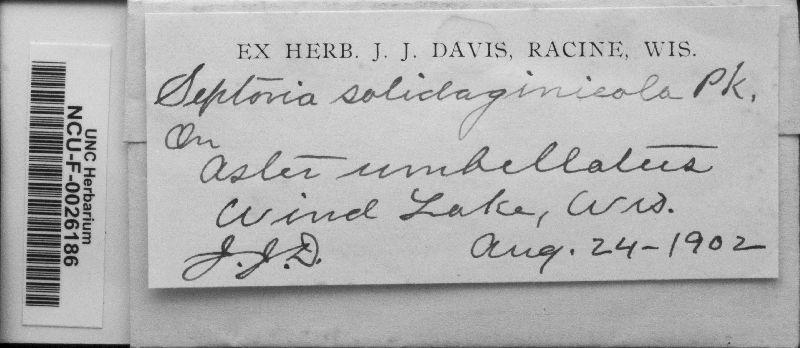 EX HERB. J. J. DAVIS, RACINE, WIS.
Septoria solidaginicola Pk.
On
Aster umbellatus
Wind Lake, Wis.
J.J.D. Aug. 24-1902
UNC Herbarium
NCU-F-0026186